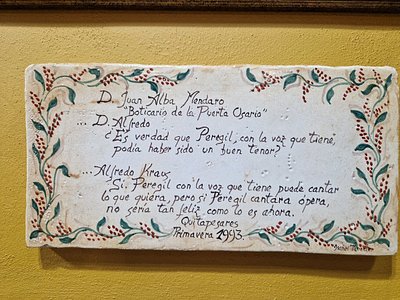 D. Juan Alba Mendaro
"Boticario de la Puerta Osario"
... D. Alfredo
¿Es verdad que Peregil, con la voz que tiene,
podía haber sido un buen tenor?
... Alfredo Kraus
Si, Peregil con la voz que tiene puede cantar
lo que quiera, pero si Peregil cantara ópera,
no sería tan feliz como lo es ahora.
Quitapesares
Primavera 1993.